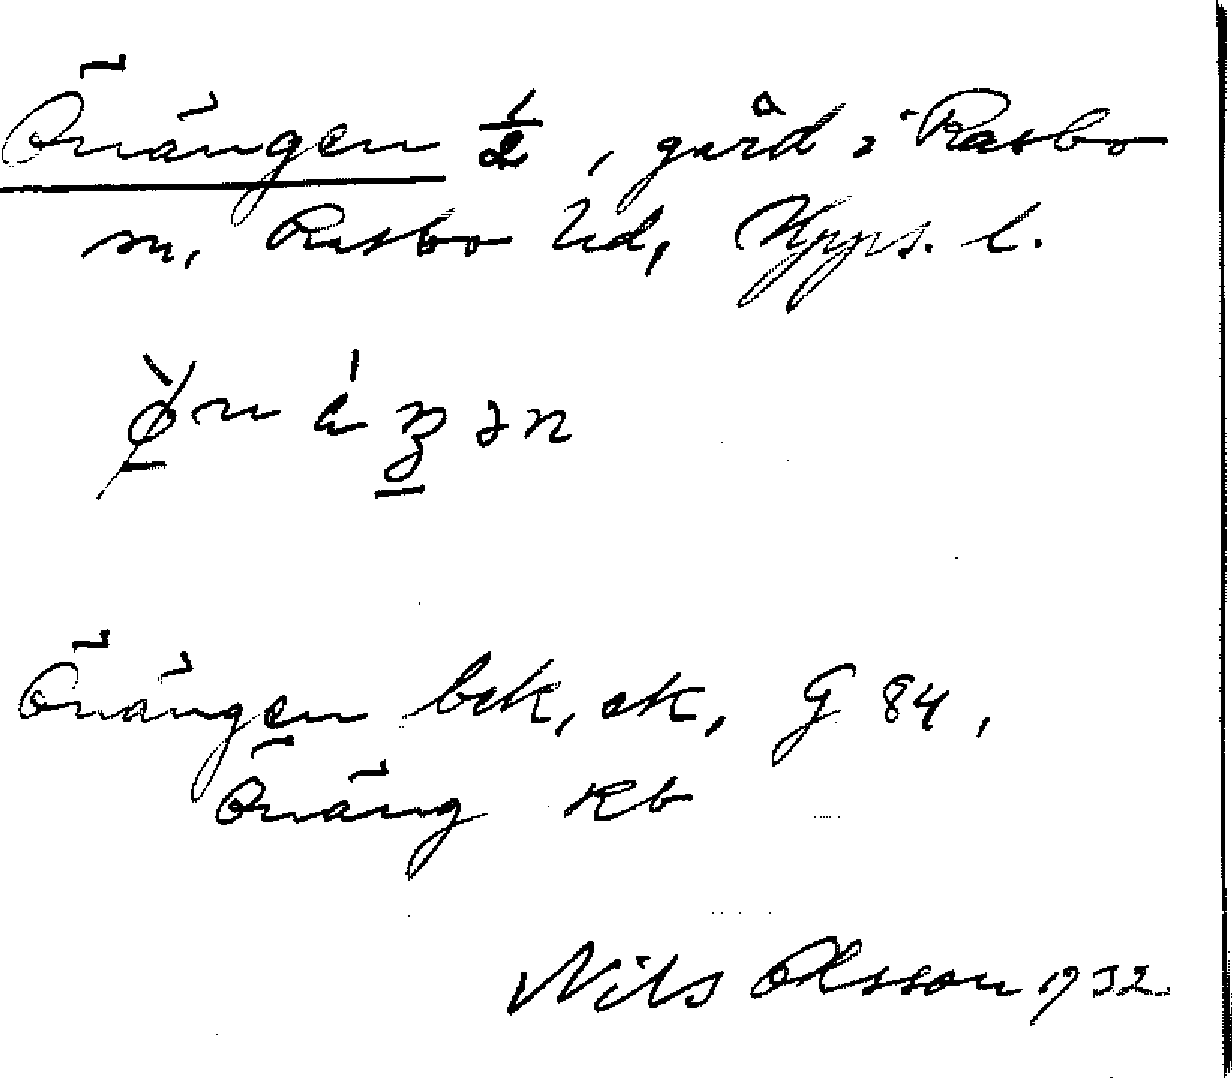 Önängen ½, gård i Rasbo
sn, Rasbo hd, Upps. l.
Önängen bek, ek, G 84,
Önäng Kb
Nils Olsson 1932